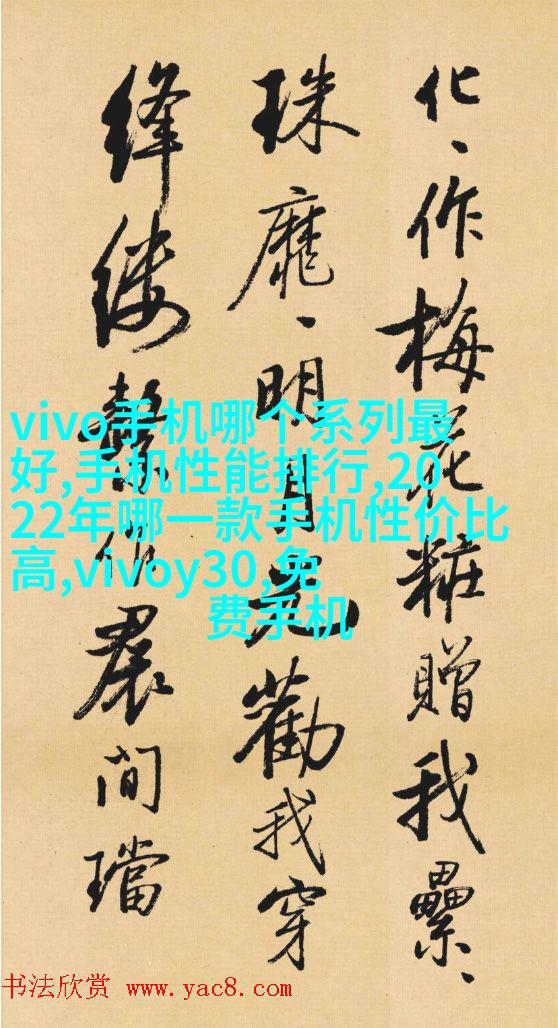 化、作梅花粧贈我纍、
珠靡、明月光勸我穿
絳縷繫作裠間璫
vivo手机哪个系列最
好,手机性能排行,20
22年哪一款手机性价比
高,vivoy30,免
费手机
书法欣赏 www.yac8.com